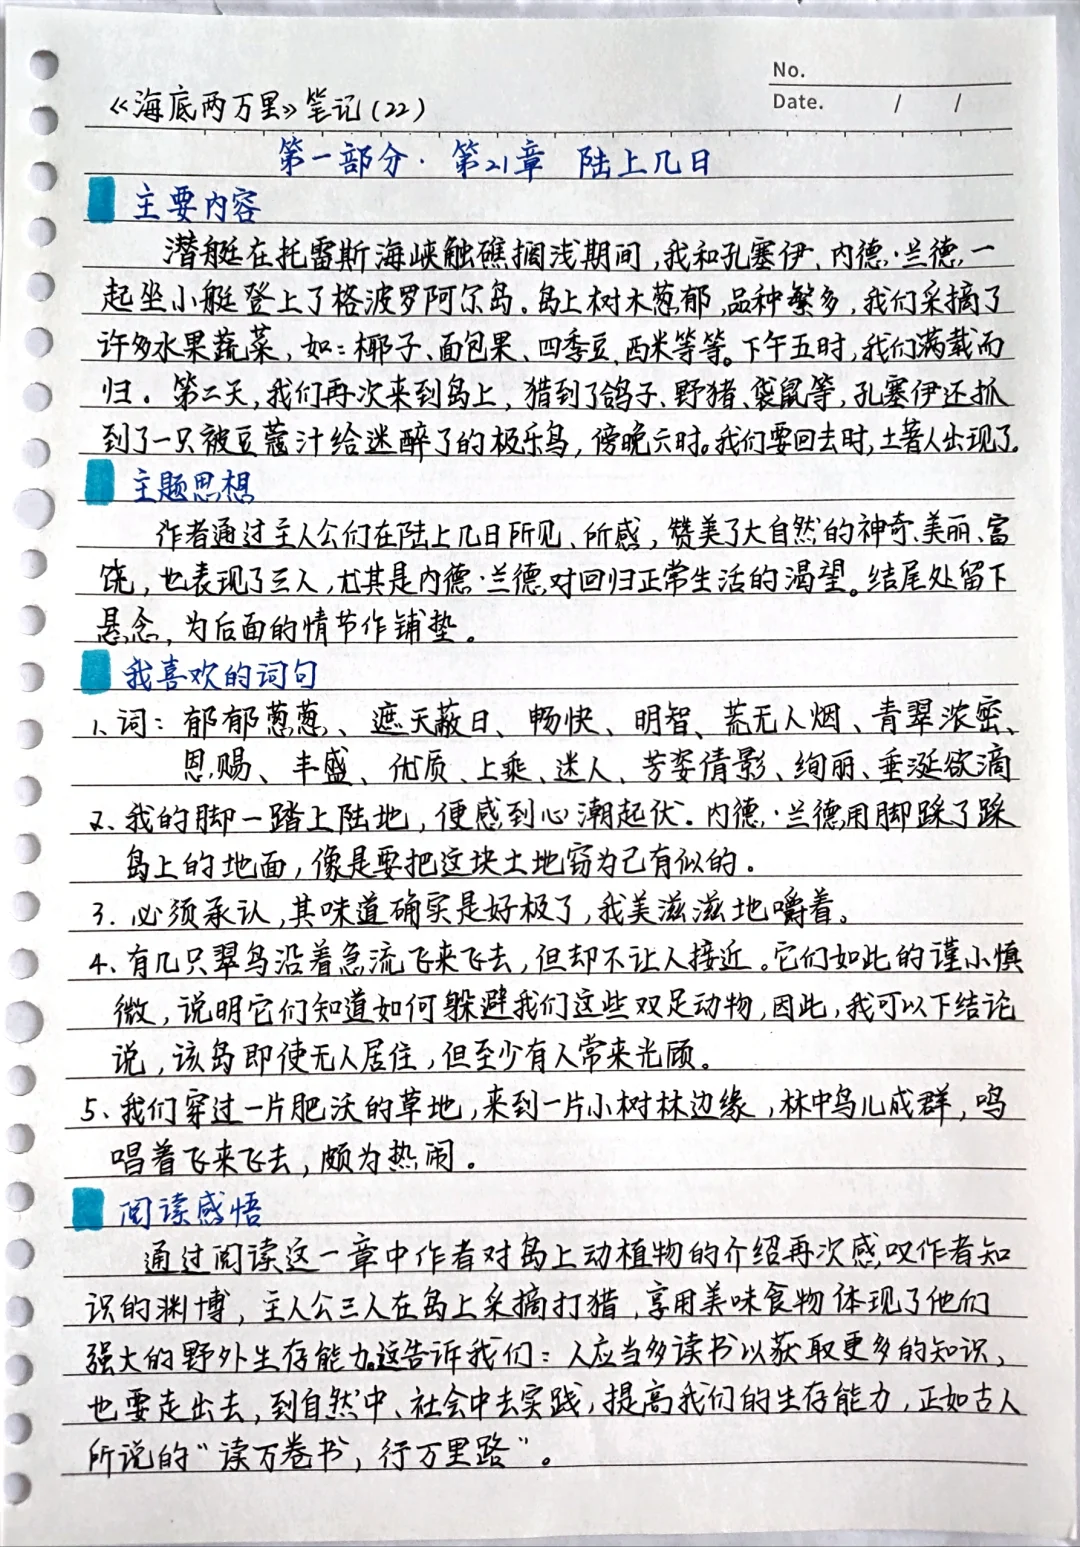 No.
Date. / /
《海底两万里》笔记(22)
第一部分·第21章 陆上几日
主要内容
潜艇在托雷斯海峡触礁搁浅期间,我和孔塞伊、内德·兰德,一
起坐小艇登上了格波罗阿尔岛。岛上树木葱郁,品种繁多,我们采摘了
许多水果蔬菜,如:椰子、面包果、四季豆、西米等等。下午五时,我们满载而
归。第二天,我们再次来到岛上,猎到了鸽子、野猪、袋鼠等,孔塞伊还抓
到了一只被豆蔻汁给迷醉了的极乐鸟,傍晚六时。我们要回去时,土著人出现了。
主题思想
作者通过主人公们在陆上几日所见、所感,赞美了大自然的神奇、美丽、富
饶,也表现了三人,尤其是内德·兰德,对回归正常生活的渴望。结尾处留下
悬念,为后面的情节作铺垫。
我喜欢的词句
1、词:郁郁葱葱、遮天蔽日、畅快、明智、荒无人烟、青翠浓密、
恩赐、丰盛、优质、上乘、迷人、芳姿倩影、绚丽、垂涎欲滴
2、我的脚一踏上陆地,便感到心潮起伏。内德·兰德用脚踩了踩
岛上的地面,像是要把这块土地窃为己有似的。
3、必须承认,其味道确实是好极了,我美滋滋地嚼着。
4、有几只翠鸟沿着急流飞来飞去,但却不让人接近。它们如此的谨小慎
微,说明它们知道如何躲避我们这些双足动物,因此,我可以下结论
说,该岛即使无人居住,但至少有人常来光顾。
5、我们穿过一片肥沃的草地,来到一片小树林边缘,林中鸟儿成群,鸣
唱着飞来飞去,颇为热闹。
阅读感悟
通过阅读这一章中作者对岛上动植物的介绍再次感叹作者知
识的渊博,主人公三人在岛上采摘打猎,享用美味食物体现了他们
强大的野外生存能力。这告诉我们:人应当多读书以获取更多的知识,
也要走出去,到自然中、社会中去实践,提高我们的生存能力,正如古人
所说的“读万卷书,行万里路”。